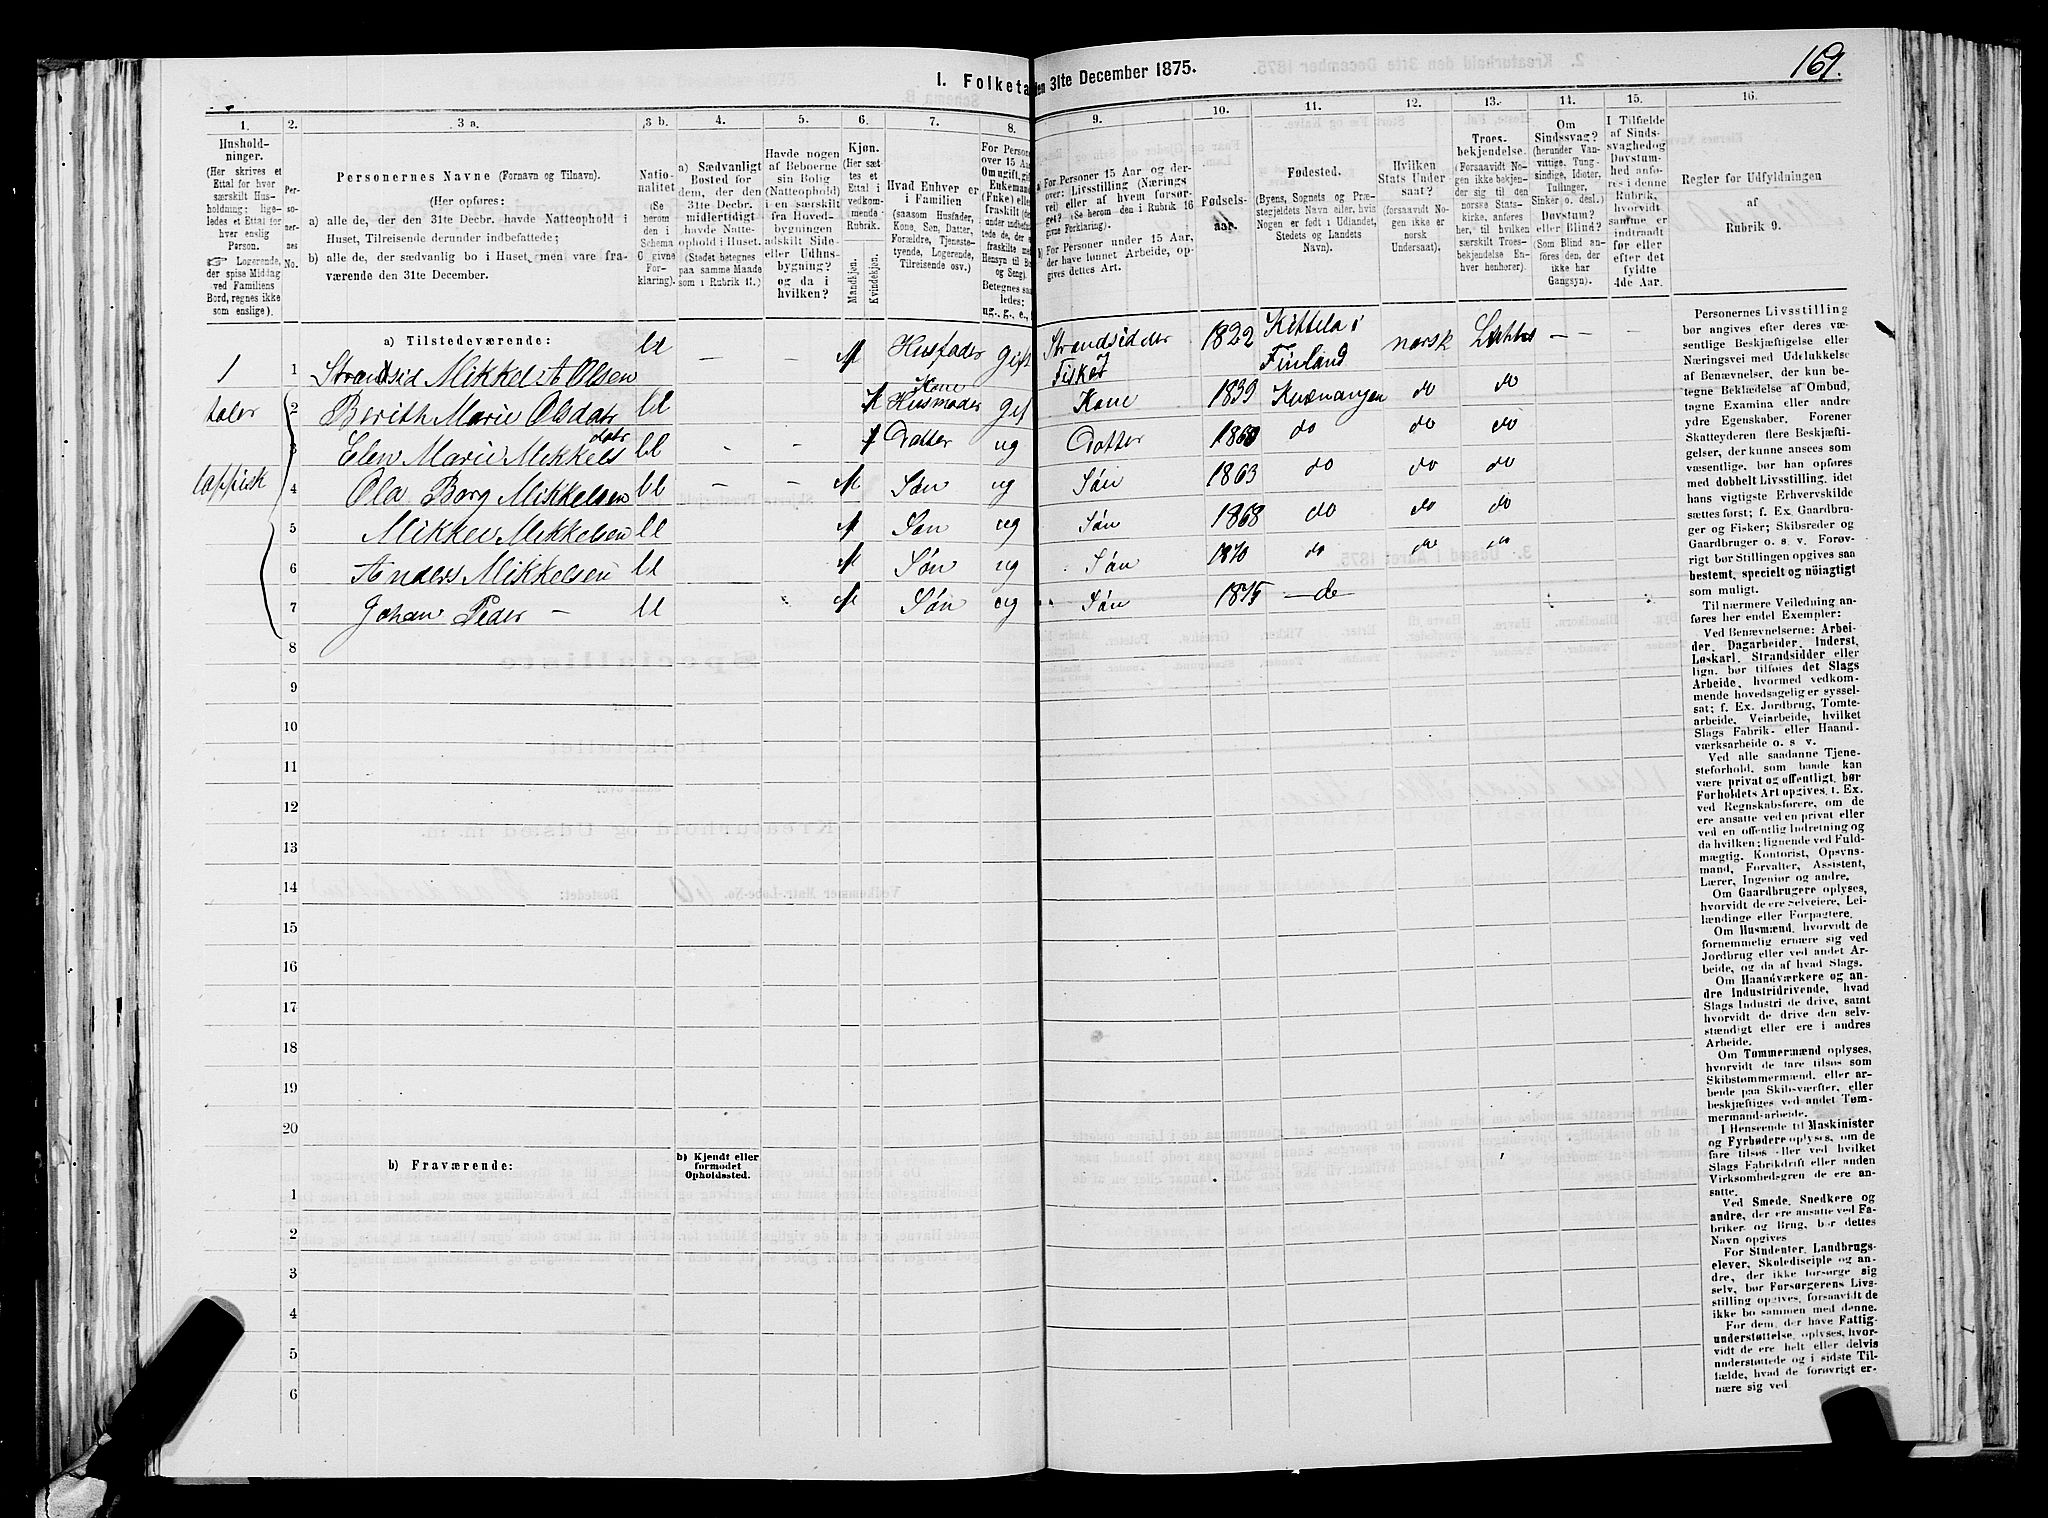 169.
I. Folketa en 31te December 1875.
1. 2. 3 a. 3 b. 4. 5. 6. 7. 8. 9. 10. 11. 12. 13. 14. 15. 16.
Hushold-
ninger.
(Her skrives et
Ettal for hver
særskilt Hus-
holdning; lige-
ledes et Ettal for
hver enslig
Person.
☞ Logerende,
der spise Middag
ved Familiens
Bord, regnes ikke
som enslige).
Per-
so-
ner-
nes
No.
Personernes Navne (Fornavn og Tilnavn).
(Her opføres:
a) alle de, der den 31te Decbr. havde Natteophold i
Huset, Tilreisende derunder indbefattede;
b) alle de, der sædvanlig bo i Huset, men vare fra-
værende den 31te December.
Natio-
nalitet
(Se
herom
den i
Schema
C givne
For-
klaring).
a) Sædvanligt
Bosted for
dem, der den
31te Decbr.
midlertidigt
havde Natte-
ophold i Huset.
(Stedet betegnes
paa samme Maade
som i Rubrik 11.)
Havde nogen
af Beboerne
sin Bolig
(Natteophold)
i en særskilt
fra Hoved-
bygningen
adskilt Side-
eller Udhus-
bygning?
og da i
hvilken?
Kjøn.
(Her sæt-
tes et
Ettal i
vedkom-
mende
Rubrik.
Mandkjøn.
Kvindekjøn.
Hvad Enhver er
i Familien
(saasom Husfader,
Kone, Søn, Datter,
Forældre, Tjeneste-
tyende, Logerende,
Tilreisende osv.)
For Personer
over 15 Aar
Om ugift, gift
Enkemand
(Enke) eller
fraskilt
Betegnes saa-
ledes:
ug., g., e.,
a) For Personer 15 Aar og der-
over: Livsstilling (Nærings-
vei) eller af hvem forsør-
get? (Se herom den i Rubrik 16
givne Forklaring).
b) For Personer under 15 Aar,
der have lønnet Arbeide, op-
gives dettes Art.
Fødsels-
aar.
Fødested.
(Byens, Sognets og Præ-
stegjeldets Navn eller, hvis
Nogen er født i Udlandet,
Stedets og Landets
Navn).
Hvilken
Stats Under
saat?
(forsaavidt No-
gen ikke er
norsk
Undersaat).
Troes-
bekjendelse.
(Forsaavidt No-
gen ikke bekjen-
der sig til den
norske Stats-
kirke, anføres
her, til hvilken
særskilt Troes-
bekjendelse En-
hver henhører).
Om
Sindssvag?
(herunder Van-
vittige, Tung-
sindige, Idioter,
Tullinger,
Sinker o. desl.)
Døvstum?
eller Blind?
(Som Blind an-
føres den, der
ikke har
Gangsyn).
I Tilfælde
af Sinds-
svaghed og
Døvstum-
hed anfø-
res i denne
Rubrik,
hvorvidt
samme er
indtraadt
før eller
efter det
fyldte
4de Aar.
Regler for Udfyldningen
af
Rubrik 9.
a) Tilstedeværende:
1 1 Strandsid Mikkel A Olsen ll — — M Husfader gift Strandsidder Fisker 1822 Kittela i Finland norsk — —
taler 2 Berith Marie Olsdatr ll K Kone Husmoder gif Kone 1839 Kvænangen do do
3 Elen Marie Mikkels datr ll - - Datter ug Datter 1860 do do do
lappisk 4 Ola Borg Mikkelsen ll - - M Søn ug Søn 1863 do do do
5 Mikkel Mikkelsen ll M Søn ug Søn 1868 do do do
6 Anders Mikkelsen ll M Søn ug Søn 1870 do do do
7 Johan Peder — ll M Søn ug Søn 1875 — do —
8
9
10
11
12
13
14
15
16
17
18
19
20
b) Fraværende:
b) Kjendt eller
formodet
Opholdssted.
1
2
3
4
5
6
Personernes Livsstilling
bør angives efter deres væ-
sentlige Beskjæftigelse eller
Næringsvei med Udelukkelse
af Benævnelser, der kun be-
tegne Beklædelse af Ombud,
tagne Examina eller andre
ydre Egenskaber. Forener
Skatteyderen flere Beskjæfti-
gelser, der kunne ansees som
væsentlige, bør han opføres
med dobbelt Livsstilling, idet
hans vigtigste Erhvervskilde
sættes først; f. Ex. Gaardbru-
ger og Fisker; Skibsreder og
Gaardbruger o. s. v. Forøv-
rigt bør Stillingen opgives saa
bestemt, specielt og nöiagtigt
som muligt.
Til nærmere Veiledning an-
føres her endel Exempler:
Ved Benævnelserne: Arbei-
der, Dagarbeider, Inderst,
Løskarl, Strandsidder eller
lign. bør tilføies det Slags
Arbeide, hvormed vedkom-
mende hovedsagelig er syssel-
sat; f. Ex. Jordbrug, Tomte-
arbeide, Veiarbeide, hvilket
Slags Fabrik- eller Haand-
værksarbeide o. s. v.
Ved alle saadanne Tjene-
steforhold, som baade kan
være privat og offentligt, bør
Forholdets Art opgives, t. Ex.
ved Regnskabsførere, om de
ere ansatte ved en privat eller
ved en offentlig Indretning og
da hvilken; lignende ved Fuld-
mægtig, Kontorist, Opsyns-
mand, Forvalter, Assistent,
Lærer, Ingeniør og andre.
Om Gaardbrugere oplyses,
hvorvidt de ere Selveiere, Lei-
lændinge eller Forpagtere.
Om Husmænd, hvorvidt de
fornemmelig ernære sig ved
Jordbrug eller ved andet Ar-
beide, og da af hvad Slags.
Om Haandværkere og an-
dre Industridrivende, hvad
Slags Industri de drive, samt
hvorvidt de drive den selv-
stændigt eller ere i andres
Arbeide.
Om Tømmermænd oplyses,
hvorvidt de fare tilsøs som
Skibstømmermænd, eller ar-
beide paa Skibsværfter, eller
beskjæftiges ved andet Tøm-
mermandarbeide.
I Henseende til Maskinister
og Fyrbødere oplyses, om de
fare tilsøs eller ved hvilket
Slags Fabrikdrift eller anden
Virksomhedsgren de ere an-
satte.
Ved Smede, Snedkere og
andre, der ere ansatte ved Fa-
briker og Brug, bør dettes
Navn opgives
For Studenter, Landbrugs-
elever, Skoledisciple og an-
dre, der ikke forsørge sig
selv, bør Forsørgerens Livs-
stilling opgives, forsaavidt de
ikke bo sammen med denne.
For dem, der have Fattig-
understøttelse, oplyses, hvor-
vidt de ere helt eller delvis
understøttede og i sidste Til-
fælde, hvad de forøvrigt er-
nære sig ved